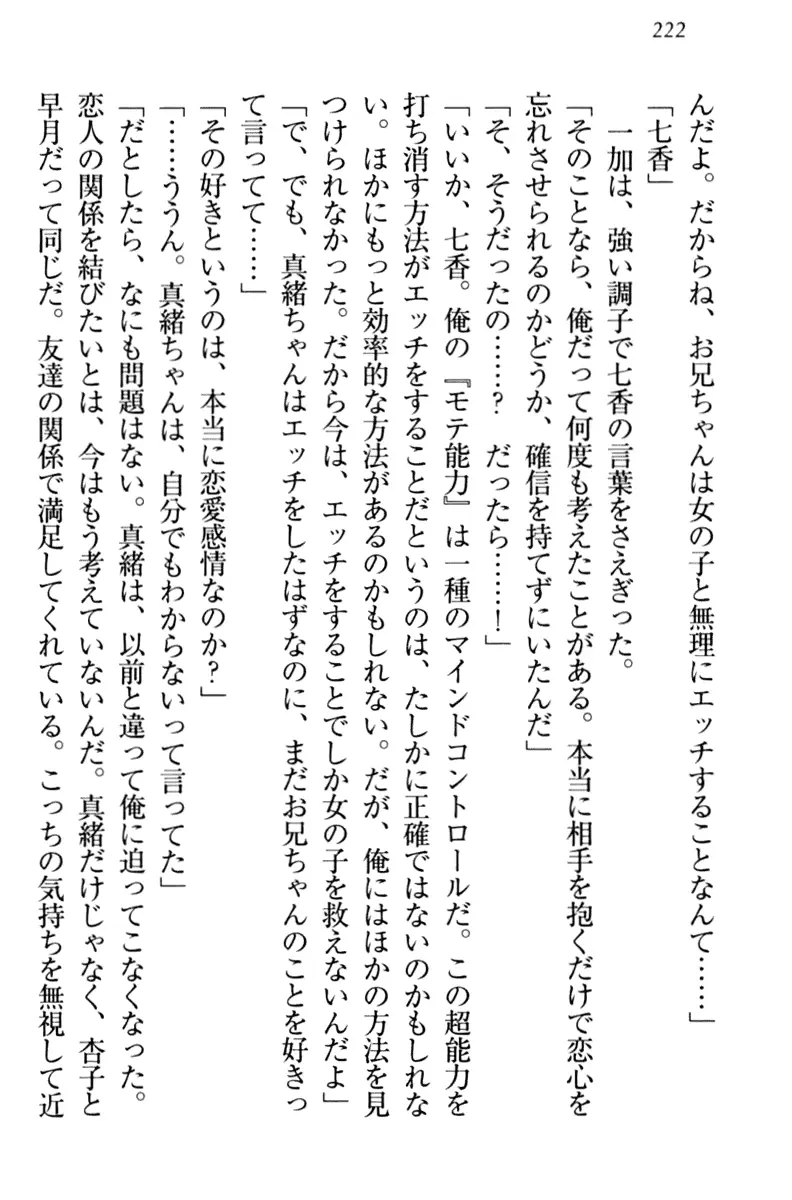 222
んだよ。だからね、お兄ちゃんは女の子と無理にエッチすることなんて……」
「七香」
一加は、強い調子で七香の言葉をさえぎった。
「そのことなら、俺だって何度も考えたことがある。本当に相手を抱くだけで恋心を
忘れさせられるのかどうか、確信を持てずにいたんだ」
「そ、そうだったの……？　だったら……！」
「いいか、七香。俺の『モテ能力』は一種のマインドコントロールだ。この超能力を
打ち消す方法がエッチをすることだというのは、たしかに正確ではないのかもしれな
い。ほかにもっと効率的な方法があるのかもしれない。だが、俺にはほかの方法を見
つけられなかった。だから今は、エッチをすることでしか女の子を救えないんだよ」
「で、でも、真緒ちゃんはエッチをしたはずなのに、まだお兄ちゃんのことを好きっ
て言ってて……」
「その好きというのは、本当に恋愛感情なのか？」
「……ううん。真緒ちゃんは、自分でもわからないって言ってた」
「だとしたら、なにも問題はない。真緒は、以前と違って俺に迫ってこなくなった。
恋人の関係を結びたいとは、今はもう考えていないんだ。真緒だけじゃなく、杏子と
早月だって同じだ。友達の関係で満足してくれている。こっちの気持ちを無視して近